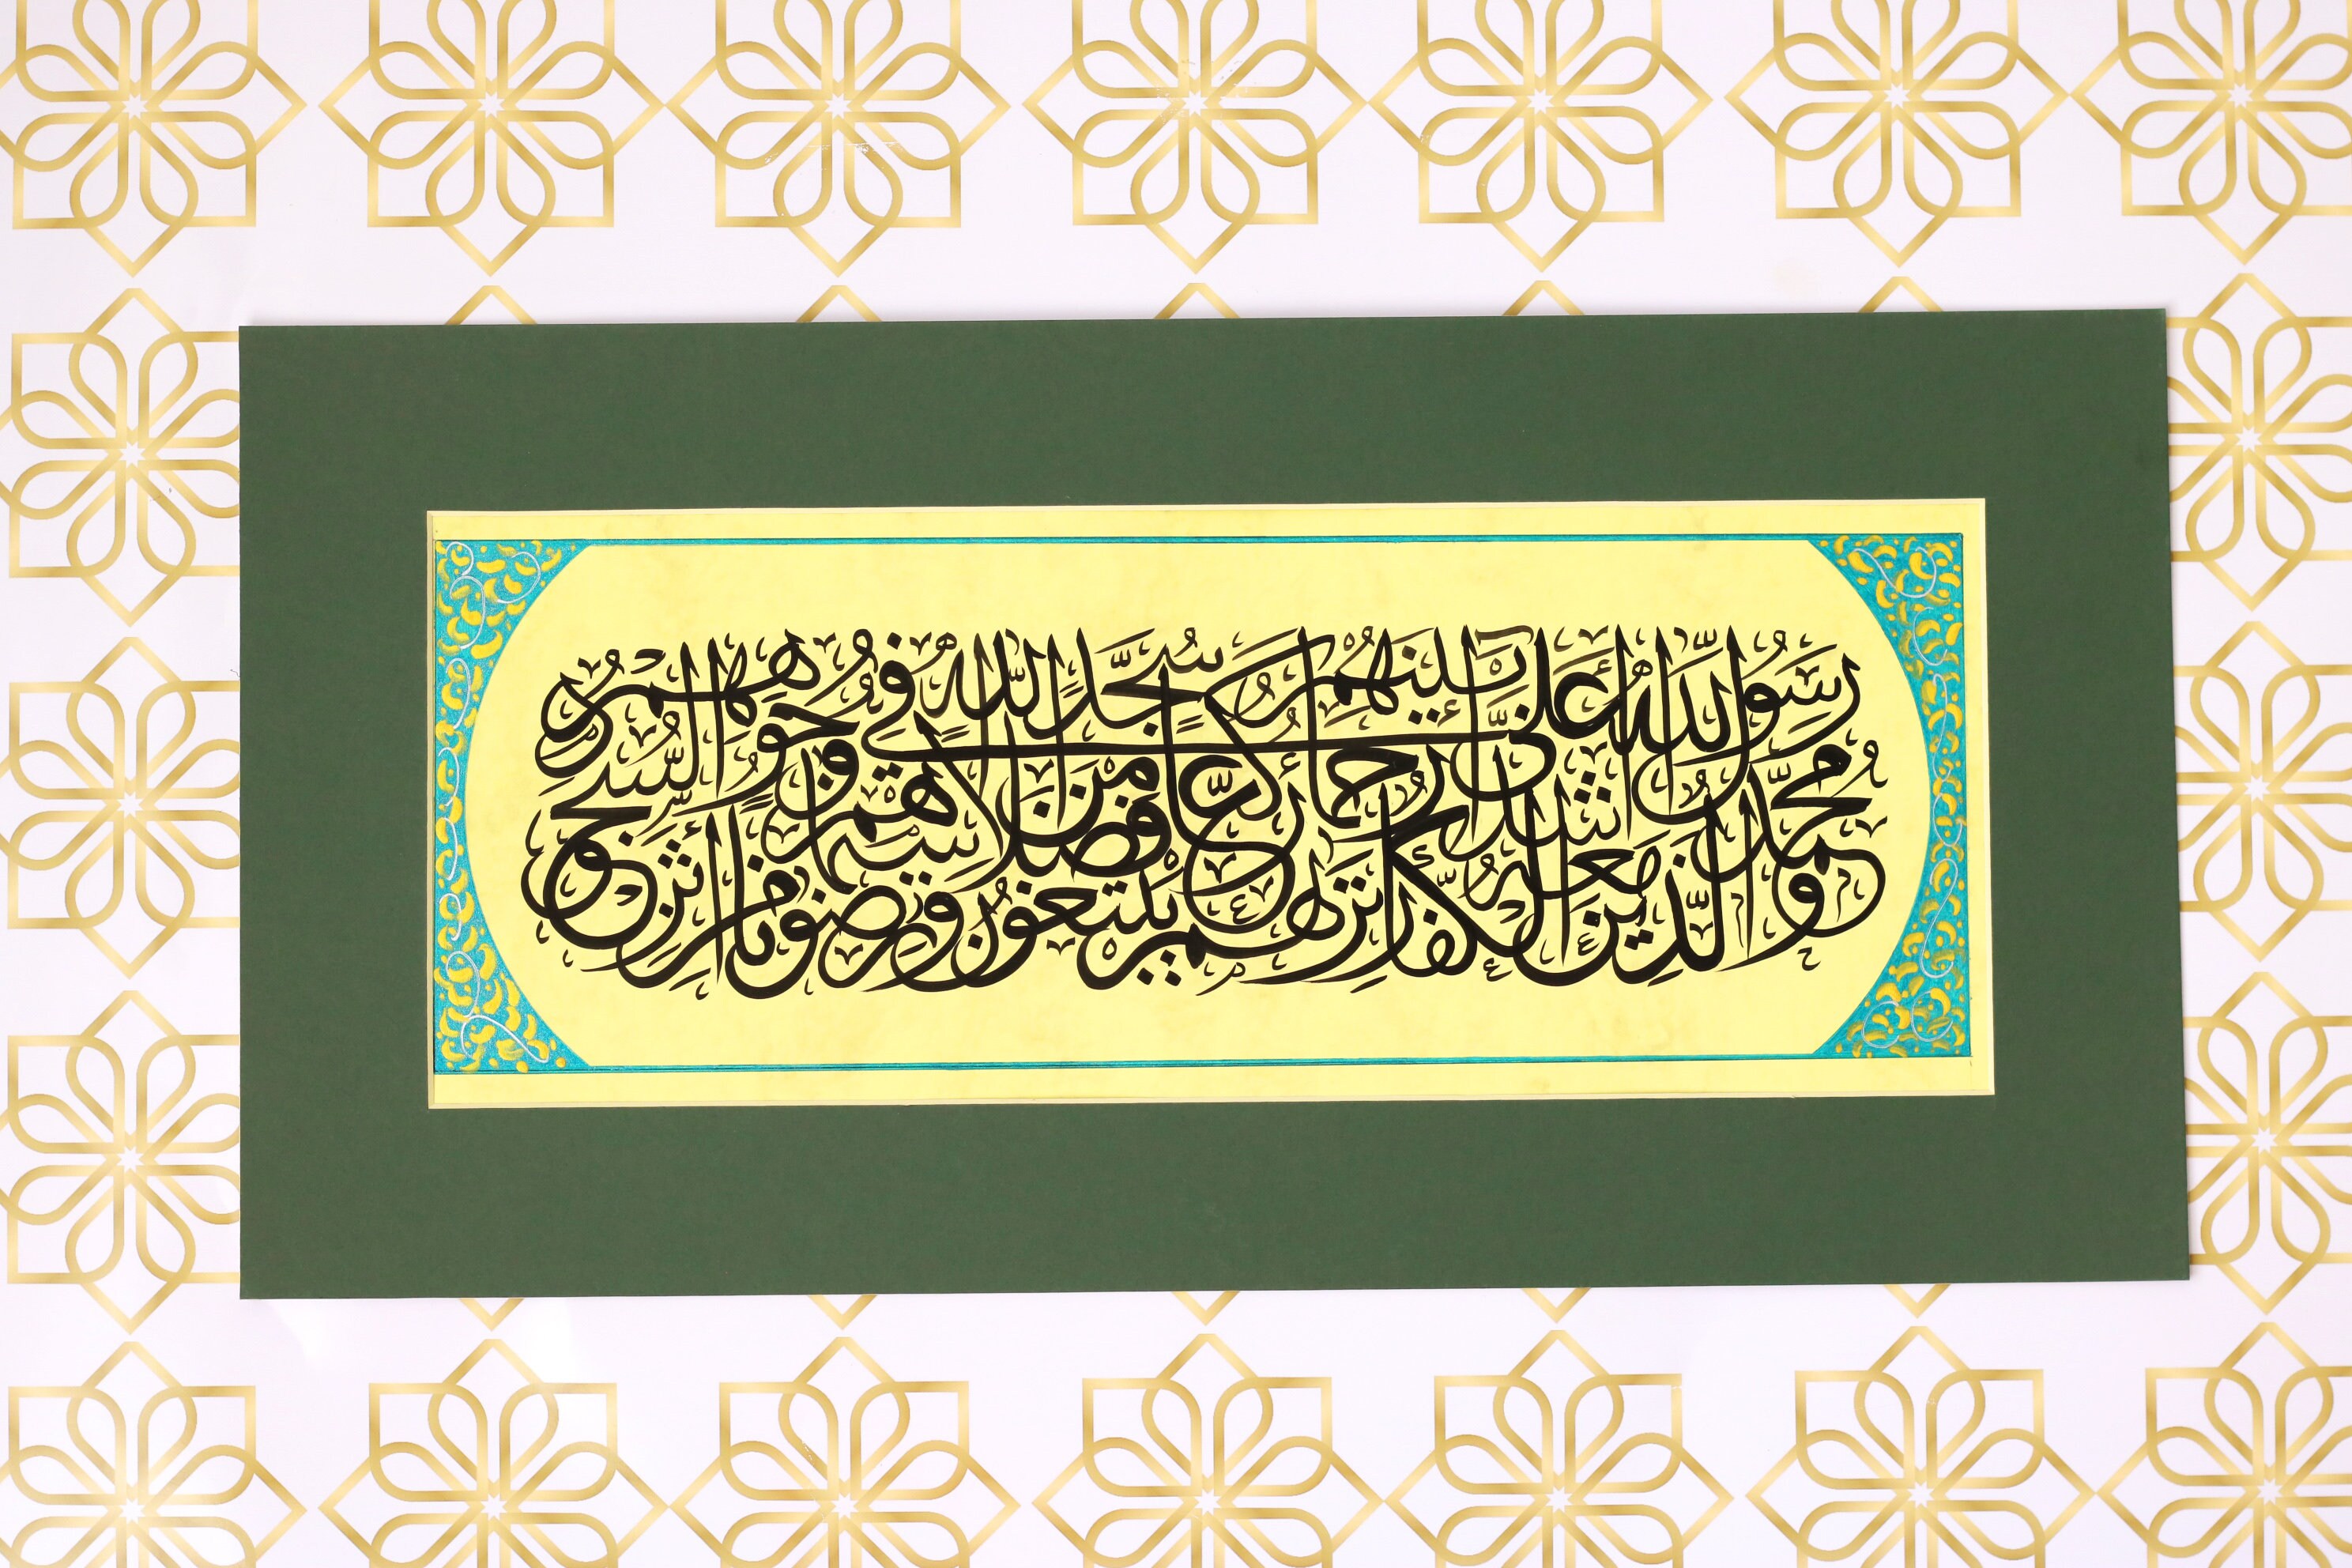 محمد رسول الله والذين معه أشداء على الكفار رحماء بينهم تراهم ركعا سجدا يبتغون فضلا من الله ورضوانا سيماهم في وجوههم من أثر السجود